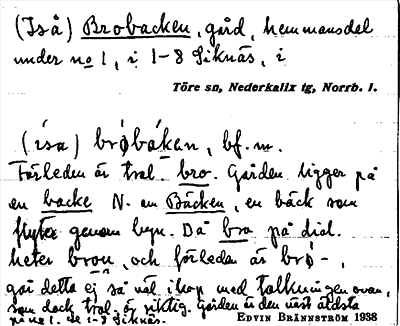 (Iså) Brobacken, gård, hemmansdel
under no 1, i 1-8 Siknäs, i
Töre sn, Nederkalix tg, Norrb. l.
(ísa) brǿbákən, bf. m.
Förleden är trol. bro. Gården ligger på
en backe N. om Bäcken, en bäck som
flyter genom byn. Då bro på dial.
heter brou, och förleden är brø-,
går detta ej så väl ihop med tolkningen ovan,
som dock trol. är riktig. Gården är den näst äldsta
på no 1. Se 1-8 Siknäs.
EDVIN BRÄNNSTRÖM 1938